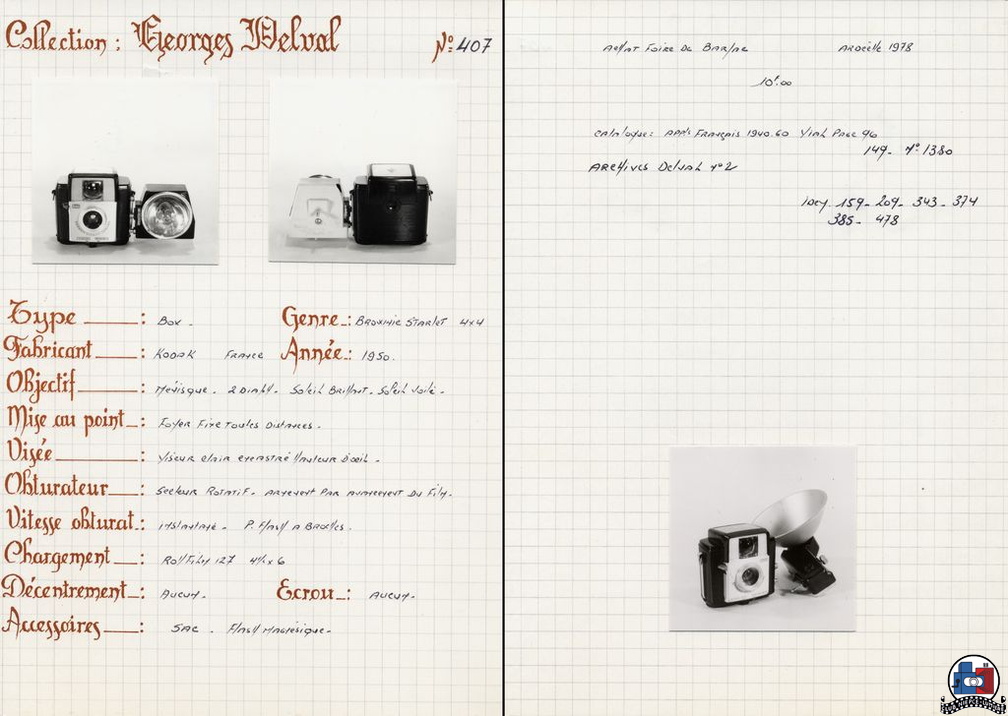 Collection : Georges Delval N° 407
Type : Box -
Genre : Brownie Starlet 4x4
Fabricant : Kodak France
Année : 1950.
Objectif : Ménisque - 2 Diaph - Soleil Brillant - Soleil Voilé -
Mise au point : Foyer Fixe Toutes Distances -
Visée : Viseur clair encastré Hauteur D'oeil -
Obturateur : Secteur Rotatif - armement Par avancement Du Film -
Vitesse obturat. : instantané - P. Flash a Broches -
Chargement : Roll Film 127 4½ x 6
Décentrement : Aucun -
Ecrou : Aucun -
Accessoires : Sac - Flash magnésique -
Achat Foire De 1978
10F.00
Catalogue : App. Français 1940.60 Vial Page 96
149 - N° 1380
Archives Delval N° 2
159 - 209 - 343 - 374
385 - 478